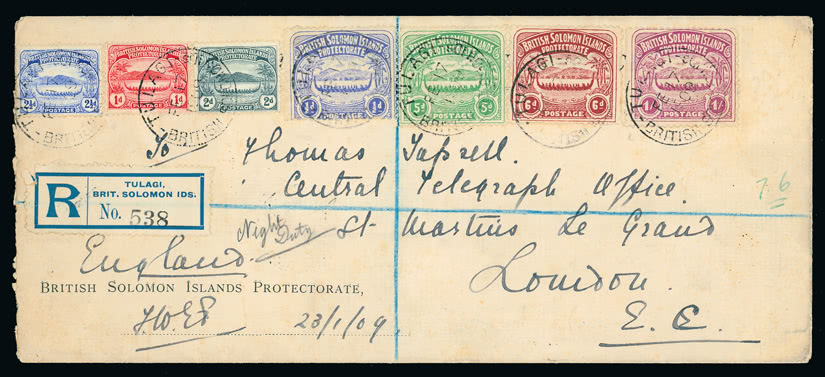 BRITISH SOLOMON ISLANDS PROTECTORATE
2½d 2½d
POSTAGE
BRITISH SOLOMON ISLANDS PROTECTORATE
1d 1d
POSTAGE
BRITISH SOLOMON ISLANDS PROTECTORATE
2d 2d
POSTAGE
BRITISH SOLOMON ISLANDS
PROTECTORATE
½d ½d
POSTAGE
BRITISH SOLOMON ISLANDS
PROTECTORATE
5d 5d
POSTAGE
BRITISH SOLOMON ISLANDS
PROTECTORATE
6d 6d
POSTAGE
BRITISH SOLOMON ISLANDS
PROTECTORATE
1/- 1/-
POSTAGE
TULAGI
BRITISH
To
Thomas Tapsell.
Central Telegraph Office.
St Martins Le Grand
London.
E. C.
7.6
R
TULAGI,
BRIT. SOLOMON IDS.
No. 538
Night
Duty
England
BRITISH SOLOMON ISLANDS PROTECTORATE,
23/1/09